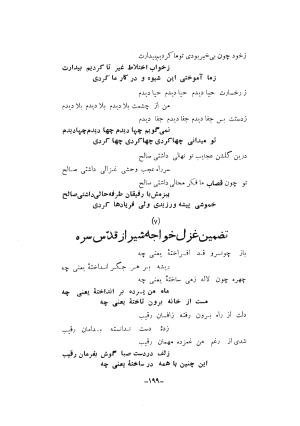 زخود چون بی‌خبر بودی تو ما کردیم بیدارت
زخواب اختلاط غیر تا کردیم بیدارت
ز ما آموختی این شیوه و در کار ما کردی
ز رخسارت حیا دیدم حیا دیدم حیا دیدم
من از چشمت بلا دیدم بلا دیدم بلا دیدم
ز دستت بس جفا دیدم جفا دیدم جفا دیدم
نمی‌گویم چها دیدم چها دیدم چها دیدم
تو میدانی چها کردی چها کردی چها کردی
درین گلشن عجایب تو نهالی داشتی صالح
سر راه عجب وحشی غزالی داشتی صالح
تو چون قصاب ما فکر محالی داشتی صالح
ببزمش با رقیقان طرفه حالی داشتی صالح
خموشی پیشه ورزیدی ولی فریادها کردی
(۷)
تضمین غزل خواجه شیراز قدّس سره
باز چو سرو قد افراختهٔ یعنی چه
ریشه بر هر جگر انداختهٔ یعنی چه
چهره چون لاله زمی ساختهٔ یعنی چه
ماه من پرده بر انداختهٔ یعنی چه
مست از خانه برون تاختهٔ یعنی چه
دلت از راه برون رفته زافسان رقیب
زدهٔ دست ندانسته بدامان رقیب
شدی از رغم من غمزده مهمان رقیب
زلف در دست صبا گوش بفرمان رقیب
این چنین با همه در ساختهٔ یعنی چه
-۱۹۹-